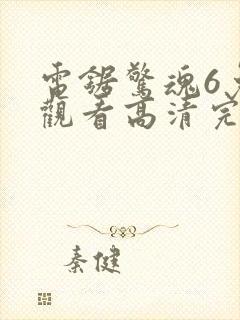 電鋸驚魂6
觀看高清完
秦健